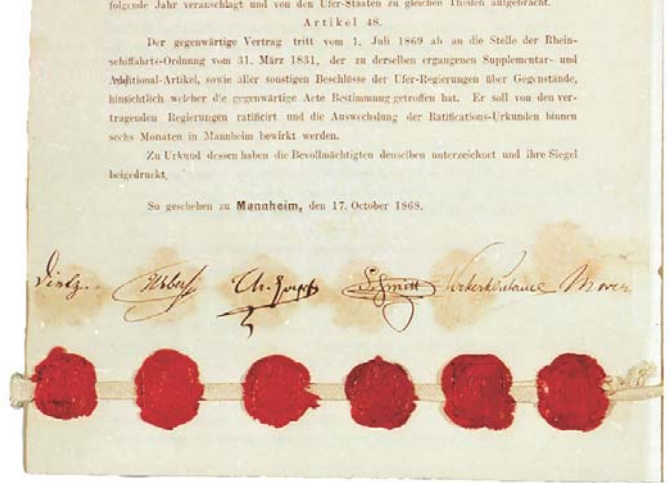 folgende Jahr veranschlagt und von den Ufer-Staaten zu gleichen Theilen aufgebracht.
Artikel 48.
Der gegenwärtige Vertrag tritt vom 1. Juli 1869 ab an die Stelle der Rhein-
schiffahrts-Ordnung vom 31. März 1831, der zu derselben ergangenen Supplementar- und
Additional-Artikel, sowie aller sonstigen Beschlüsse der Ufer-Regierungen über Gegenstände,
hinsichtlich welcher die gegenwärtige Acte Bestimmung getroffen hat. Er soll von den ver-
tragenden Regierungen ratificirt und die Auswechslung der Ratifications-Urkunden binnen
sechs Monaten in Mannheim bewirkt werden.
Zu Urkund dessen haben die Bevollmächtigten denselben unterzeichnet und ihre Siegel
beigedruckt.
So geschehen zu Mannheim, den 17. October 1868.
Dietz. Schmitt